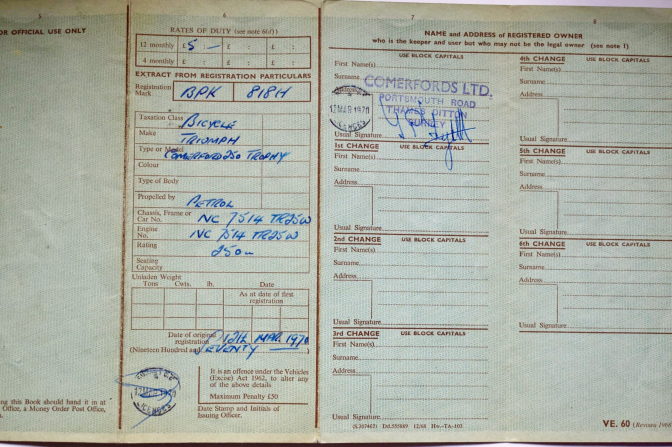 5
OR OFFICIAL USE ONLY
ing this Book should hand it in at
Office, a Money Order Post Office,
6
RATES OF DUTY (see note 6(f))
12 monthly £5 : — £ : £ :
4 monthly £ : £ : £ :
EXTRACT FROM REGISTRATION PARTICULARS
Registration
Mark BPK 818H
Taxation Class BICYCLE
Make TRIUMPH
Type or Model COMERFORD 250 TROPHY
Colour
Type of Body
Propelled by PETROL
Chassis, Frame or
Car No. NC 7514 TR25W
Engine
No. NC 7514 TR25W
Rating 250
Seating
Capacity
Unladen Weight
Tons Cwts. lb. Date
As at date of first
registration
Date of original
registration 12th MAR. 1970
(Nineteen Hundred and SEVENTY
It is an offence under the Vehicles
(Excise) Act 1962, to alter any
of the above details
Maximum Penalty £50
Date Stamp and Initials of
Issuing Officer.
7
8
NAME and ADDRESS of REGISTERED OWNER
who is the keeper and user but who may not be the legal owner (see note 1)
USE BLOCK CAPITALS
First Name(s)
Surname
COMERFORDS LTD.
PORTSMOUTH ROAD
THAMES DITTON
SURREY
12 MAR 1970
Usual Signature
1st CHANGE USE BLOCK CAPITALS
First Name(s)
Surname
Address
Usual Signature
2nd CHANGE USE BLOCK CAPITALS
First Name(s)
Surname
Address
Usual Signature
3rd CHANGE USE BLOCK CAPITALS
First Name(s)
Surname
Address
Usual Signature
(S.307467) Dd.555885 12/68 Hw.-TA-103
4th CHANGE USE BLOCK CAPITALS
First Name(s)
Surname
Address
Usual Signature
5th CHANGE USE BLOCK CAPITALS
First Name(s)
Surname
Address
Usual Signature
6th CHANGE USE BLOCK CAPITALS
First Name(s)
Surname
Address
Usual Signature
VE. 60